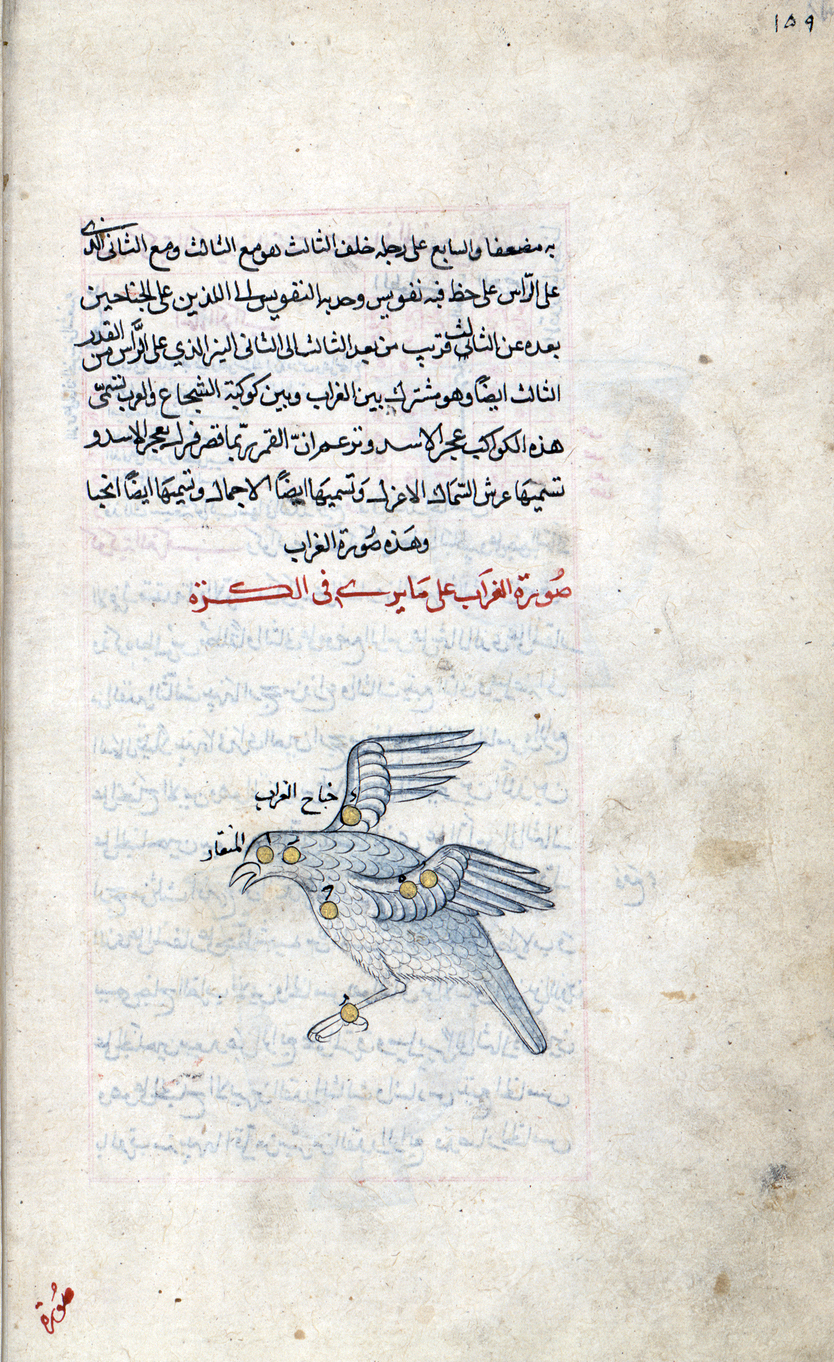 ١٥٩
به مضعفا والسابع على رجله خلف الثالث هو مع الثالث ومع الثانى الذى
على الرّأس على خط فيه تقويس وحدبه التقويس الى اللذين على الجناحين
بعده عن الثالث قريب من بعد الثالث الى الثانى النير الذي على الرّأس من القدر
الثالث ايضاً وهو مشترك بين الغراب وبين كوكبة الشجاع والعرب تسمّى
هذه الكواكب عجز الاسد وتزعم انّ القمر ربّما قصر فنزل بعجز الاسد و
تسميها عرش السّماك الاعزل وتسميها ايضاً الاجمال وتسميها ايضاً الخبا
وهذه صُورة الغراب
صُورة الغراب على ما يرى فى الكرة
جناح الغراب
المنقار
صُورة